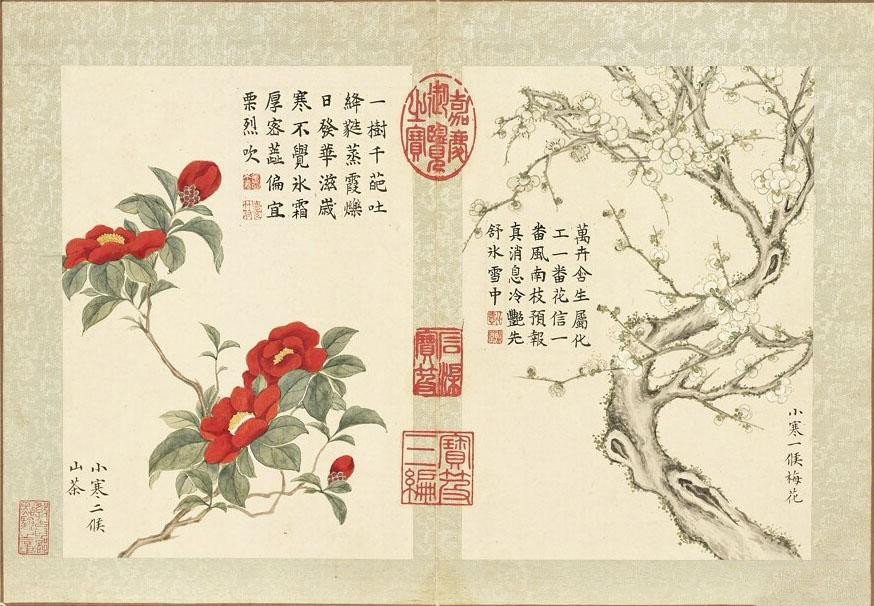 小寒一候梅花
萬卉含生屬化
工一番花信一
番風南枝預報
真消息冷艷先
舒氷雪中
嘉慶
御覽
之寶
石渠
寶笈
寶笈
三編
一樹千葩吐
絳蕤蒸霞爍
日發華滋嵗
寒不覺氷霜
厚宻蘂偏宜
栗烈吹
小寒二候
山茶